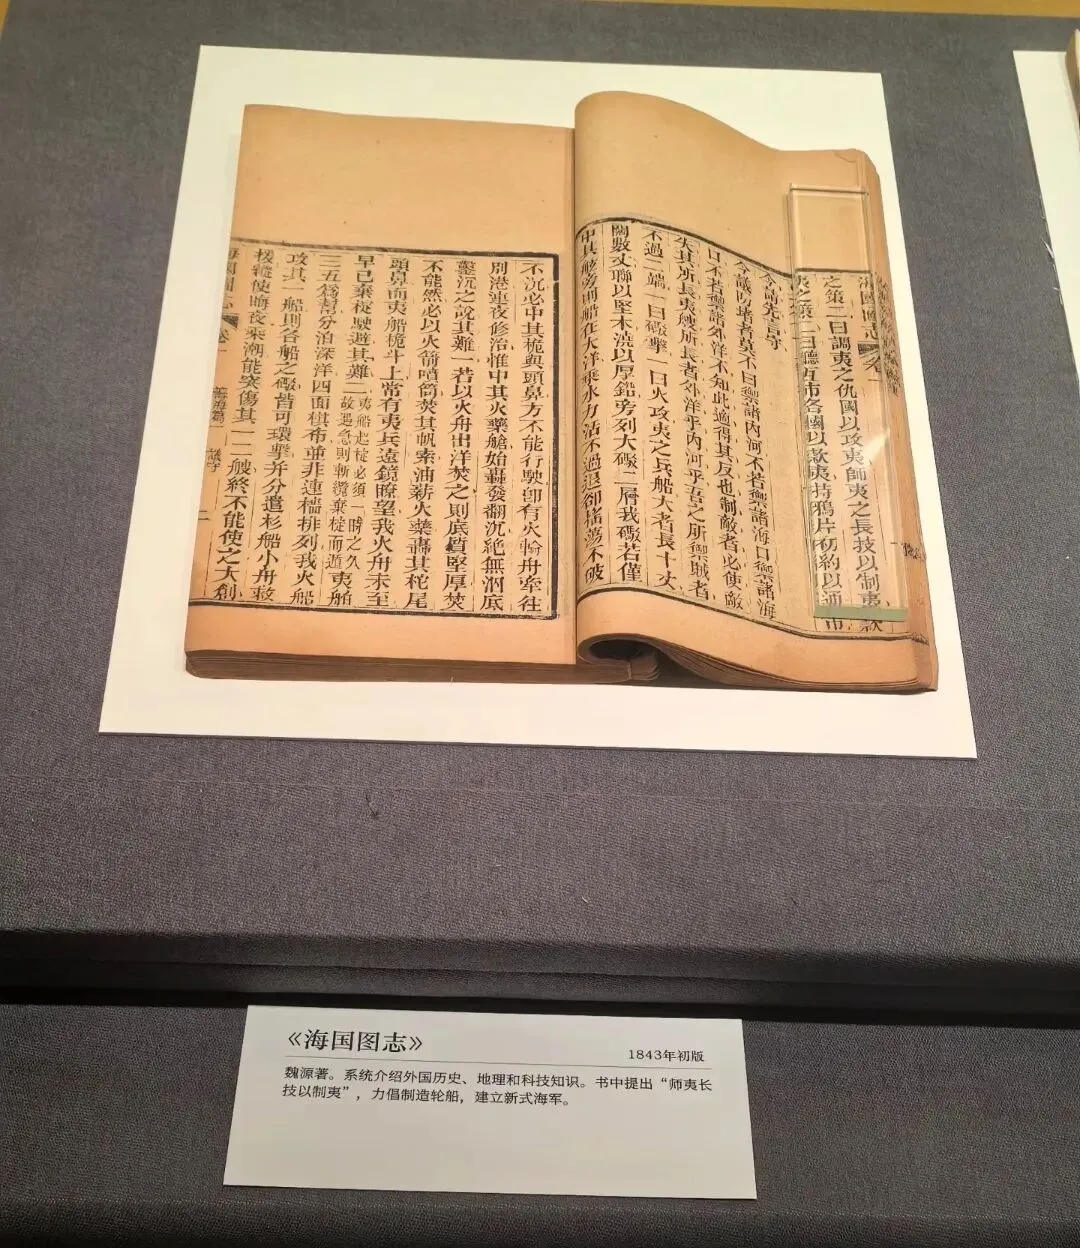 海國圖志
之策二曰調夷之仇國以攻夷師夷之長技以制夷款
夷之策二曰聽互市各國以款夷持鴉片初約以通市
今請先言守
今議防堵者莫不曰禦諸內河不若禦諸海口禦諸海
口不若禦諸外洋不知此適得其反也制敵者必使敵
失其所長夷艘所長者外洋乎內河乎吾之所禦賊者
不過二端一曰礮擊一曰火攻夷之兵船大者長十丈
闊數丈聯以堅木澆以厚鉛旁列大礮二層我礮若僅
中其舷旁則船在大洋乘水力活不過退卻搖蕩不破
不沉必中其桅與頭鼻方不能行駛卽有火輪舟牽往
別港連夜修治惟中其火藥艙始轟發翻沉絶無泅底
鑿沉之說其難一若以火舟出洋焚之則底質堅厚焚
不能然必以火箭噴筒焚其帆索油薪火藥轟其柁尾
頭鼻而夷船桅斗上常有夷兵遠鏡瞭望我火舟未至
早已棄椗駛避其難二夷船起椗必須一時之久故遇急則斬纜棄椗而遁夷船
三五爲幫分泊深洋四面棋布並非連檣排列我火船
攻其一船則各船之礮皆可環擊并分遣杉船小舟救
援縱使晦夜乘潮能突傷其一二艘終不能使之大創
海國圖志 卷一 籌海篇一 議守 二
《海国图志》
1843年初版
魏源著。系统介绍外国历史、地理和科技知识。书中提出“师夷长
技以制夷”，力倡制造轮船，建立新式海军。